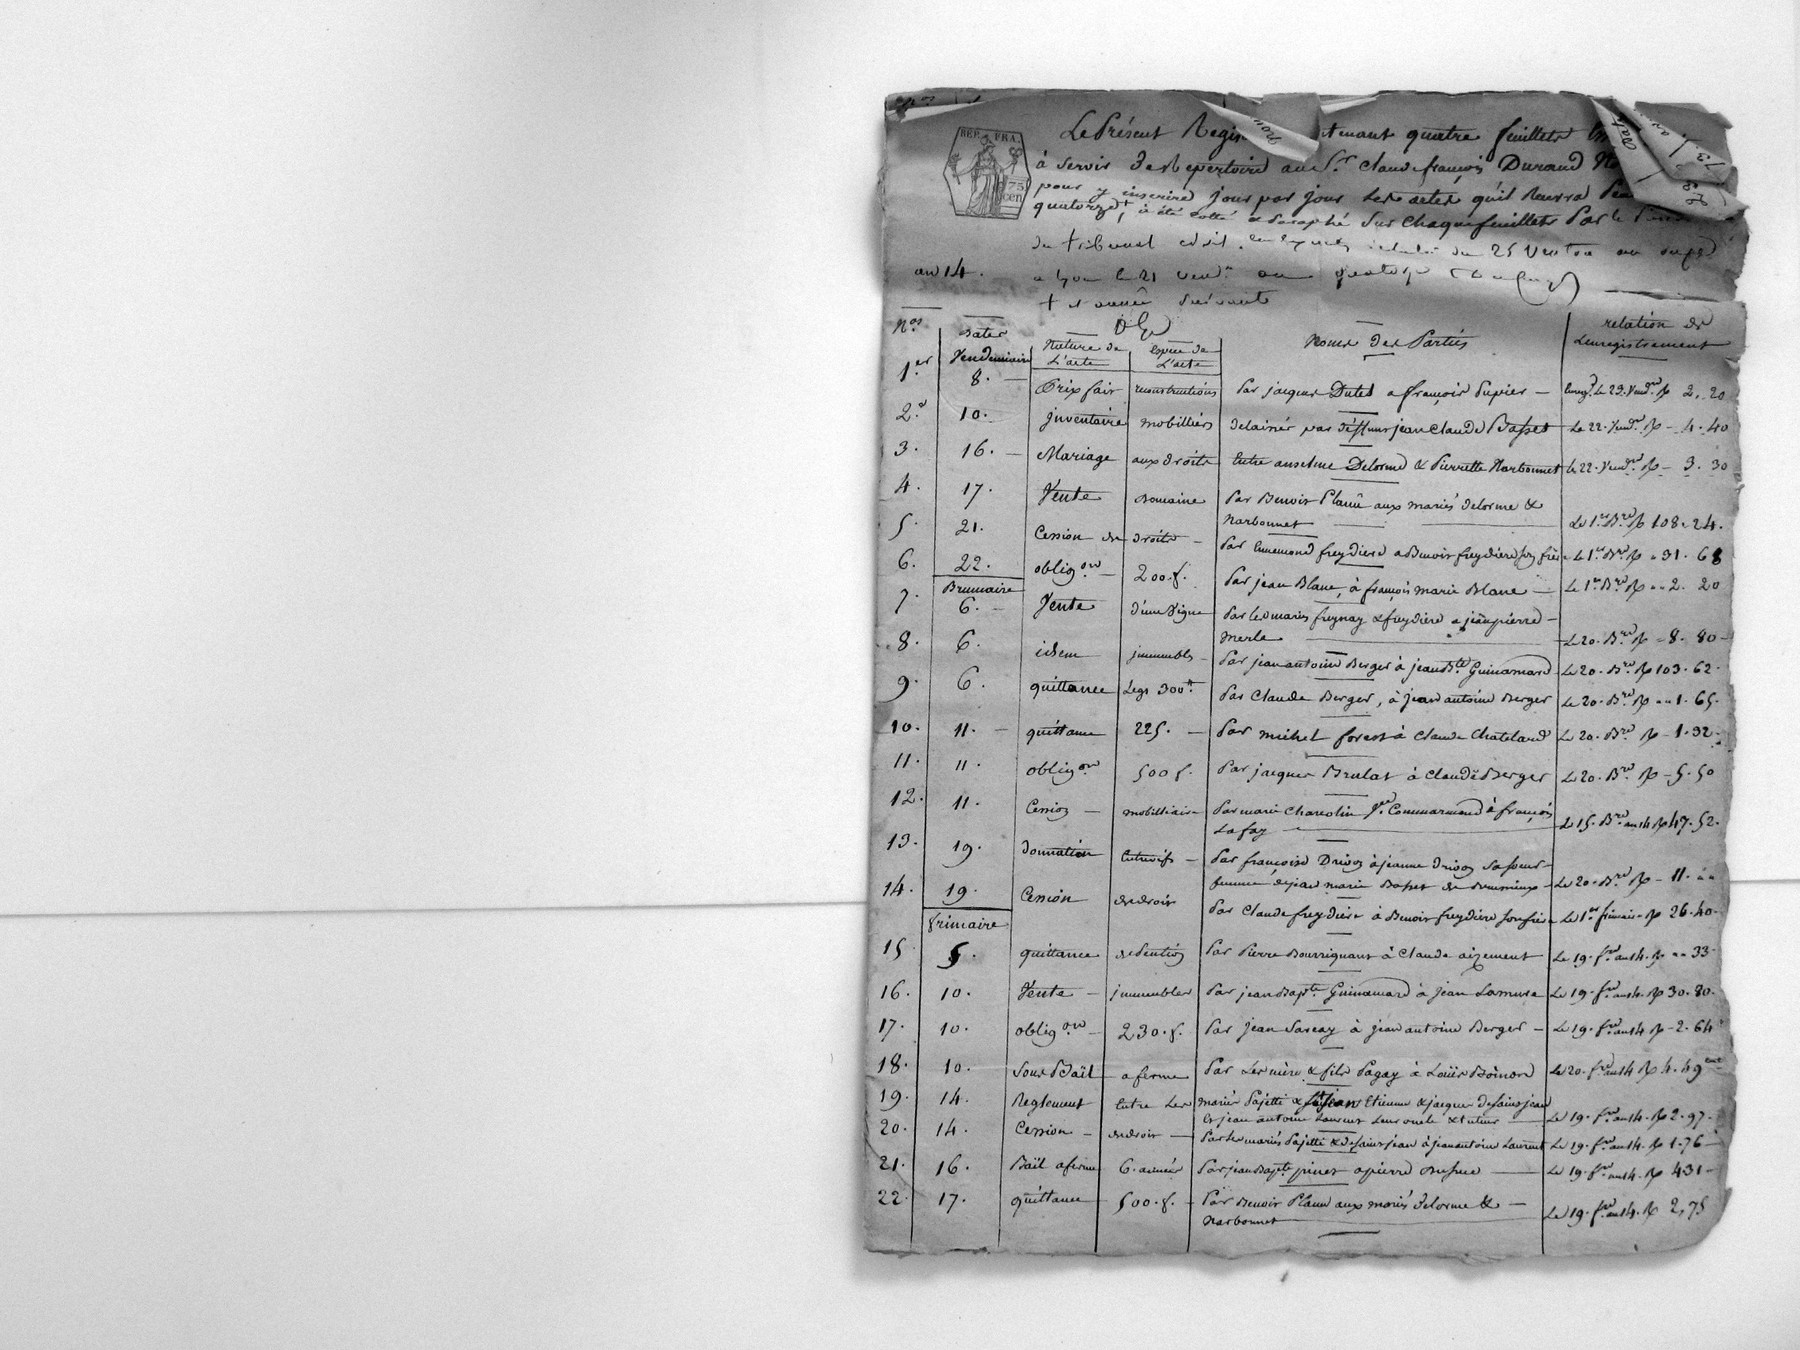 REP. FRA.
75
cen
Le Présent Regis tenant quatre feuillets
à servir de Repertoire au Sr. Claude françois Durand
pour y inscrire jour par jour les actes qu'il
quatorze +, à été cotté & Paraphé sur chaque feuillets Par le
du tribunal civil du 25 Ventose an
an 14.
a Lyon le 21 vendre an quatorze
+ et année suivante
Nos
Dates
Nature de L'acte
Espece de L'acte
Noms des Parties
relation de Lenregistrement
Vendemiaire
1er 8. Prix fait reconstructions Par jacques Dutel a françois Pupier — Enregt. Le 22. Vendre R 2. 20
2d 10. jnventaire mobilliers delaissés par déffunt jean Claude Basset Le 22. Vendre R - 4. 40
3. 16. Mariage aux droits Entre anselme Delorme & Pierrette Narbonnet Le 22. Vendre R - 3. 30
4. 17. Vente Domaine Par Benoit Planu aux mariés delorme &
Narbonnet Le 1er Bre R 108. 24.
5. 21. Cession de droits - Par Ennemond freydiere a Benoit freydiere son frere Le 1er Bre R - 31. 68
6. 22. obligon 200. f. Par jean Blanc, à françois marie Blanc — Le 1er Bre R - 2. 20
Brumaire
7. 6. Vente d'une Vigne Par les mariés freynay & freydiere a jean pierre -
Merle Le 20. Bre R - 8. 80
8. 6. idem jmmeubles - Par jean antoine Berger à jean Bte Guinamard Le 20. Bre R 103. 62.
9. 6. quittance Legs 300 Par Claude Berger, à jean antoine Berger Le 20. Bre R - 1. 65.
10. 11. quittance 225. - Par michel forest à Claude Chatelard Le 20. Bre R - 1. 32.
11. 11. obligon 500 f. Par jacques Brulat à Claude Berger Le 20. Bre R - 5. 50
12. 11. Cession — mobilliaire Par marie Charvolin Ve. Commarmond à françois
Lafay Le 15. Bre an 14 R 47. 52.
13. 19. Donnation Entrevifs - Par françoise Drivon à jeanne Drivon sa soeur -
femme de jean marie Basset de Brussieux - Le 20. Bre R - 11.
14. 19. Cession de droit Par Claude freydiere à Benoit freydiere son frere Le 1er frimaire R 26. 40.
frimaire
15 5. quittance de Pention Par Pierre Bourrignant à Claude aizement Le 19. fre an 14. R - 33
16. 10. Vente - jmmeubles Par jean Bapte. Guinamard à jean Lamure Le 19. fre an 14. R 30. 80.
17. 10. obligon - 230. f. Par jean Sarcay à jean antoine Berger - Le 19. fre an 14 R - 2. 64
18. 10. Sous Bail a ferme Par Les mère & fils Pagay à Loüis Boinon Le 20. fre an 14 R 4. 49
19. 14. Reglement Entre Les mariés Pajetti & Etienne & jacques desaintjean
Et jean antoine Laurent Leur oncle & tuteur — Le 19. fre an 14. R 2. 97.
20. 14. Cession - de droit - Par les mariés Pajetti & de saint jean à jean antoine Laurent Le 19. fre an 14. R 1. 76
21. 16. Bail a ferme 6. années Par jean Bapte pinet a pierre — Le 19. fre an 14. R 4 31 -
22. 17. quittance - 500. f. - Par Benoit Planu aux mariés delorme & -
Narbonnet Le 19. fre an 14. R 2, 75